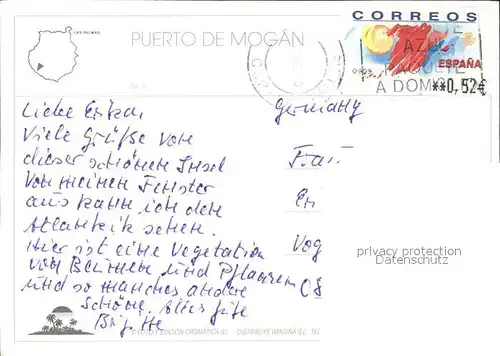 LAS PALMAS
PUERTO DE MOGÁN
CORREOS
AZUL
ESPAÑA
A DOMI
**0,52€
Germany
Liebe Erika,
Viele Grüße von
dieser schönen Insel
Von meinen Fenster
aus kann ich den
Atlantik sehen.
Hier ist eine Vegetation
von Beumen und Pflanzen
und so manches andere
Schöne. Alles gute
Brigitte
Frau
Er
Vog
privacy protection
Datenschutz
EDICION CROMATICA S.L. DISTRIBUYE IMAGINA S.L. TEL.